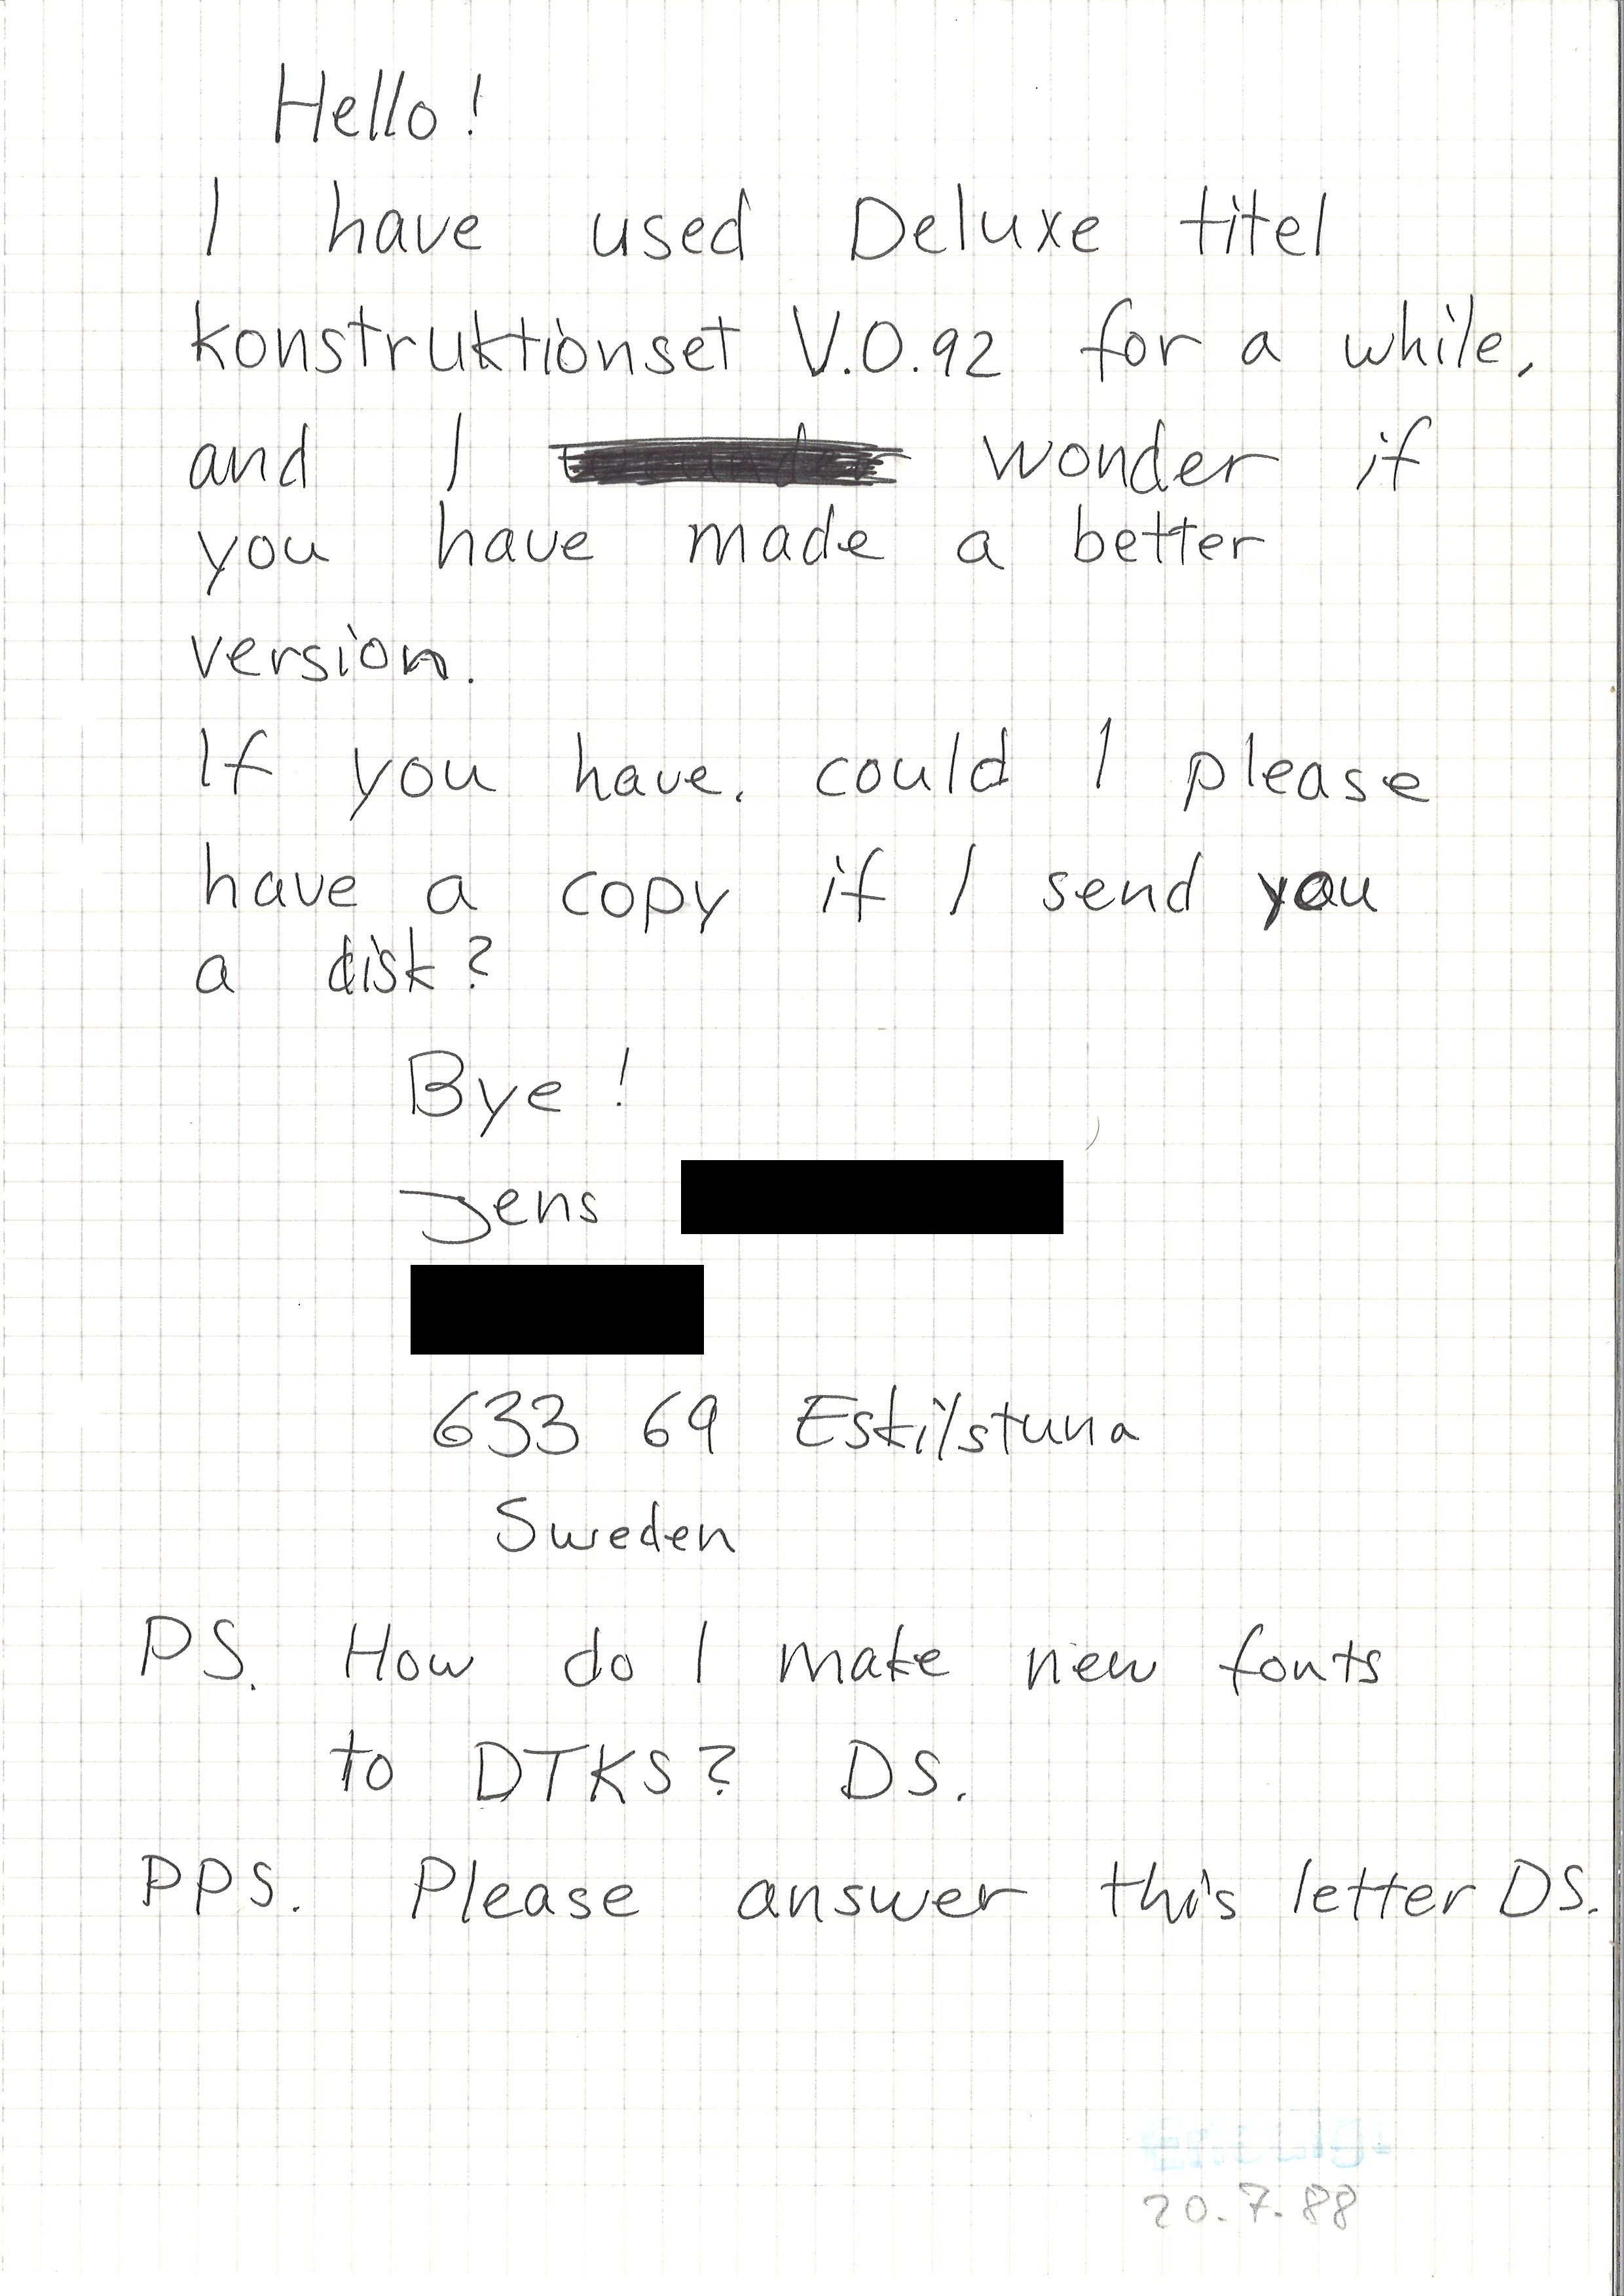 Hello!
I have used Deluxe titel
konstruktionset V.0.92 for a while,
and I wonder if
you have made a better
version.
If you have, could I please
have a copy if I send you
a disk?
Bye!
Jens
633 69 Eskilstuna
Sweden
PS. How do I make new fonts
to DTKS? DS.
PPS. Please answer this letter DS.
20.7.88